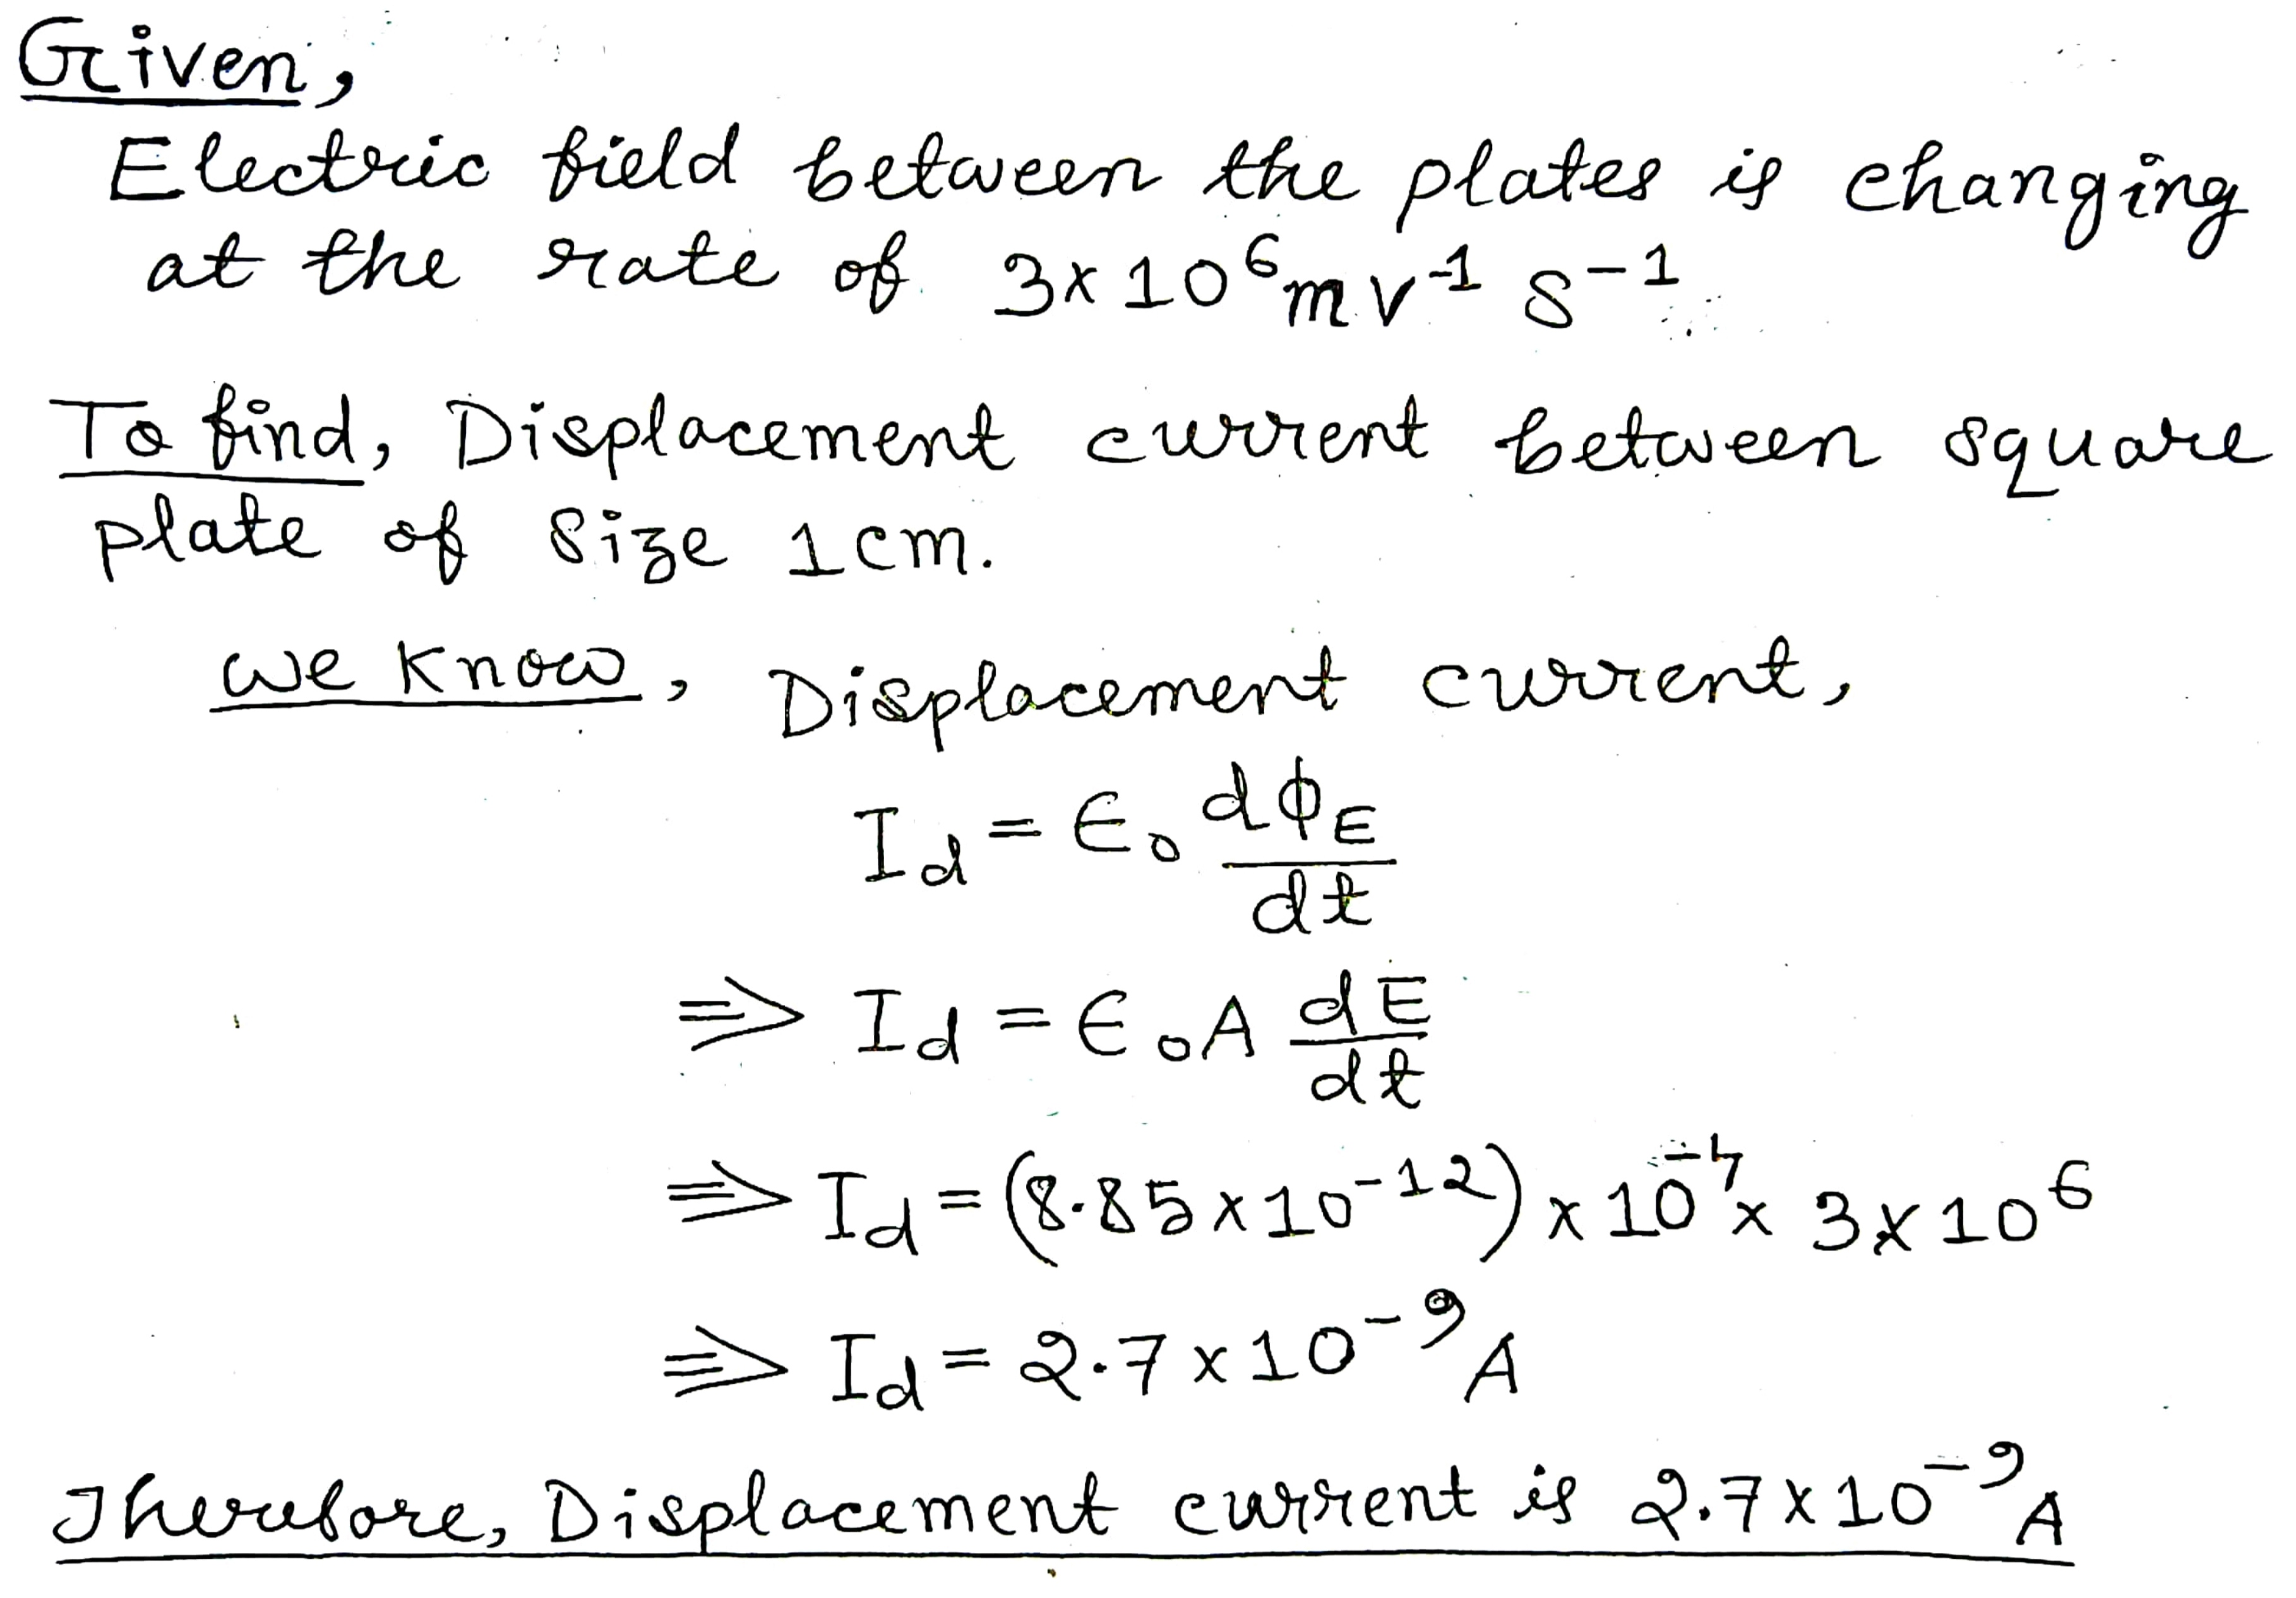 Given,
Electric field between the plates is changing
at the rate of 3×10⁶ m v⁻¹ s⁻¹
To find, Displacement current between square
plate of size 1cm.
we know, Displacement current,
I_d = ϵ₀ dϕ_E/dt
⇒ I_d = ϵ₀A dE/dt
⇒ I_d = (8.85×10⁻¹²) × 10⁻⁴ × 3×10⁶
⇒ I_d = 2.7×10⁻⁹ A
Therefore, Displacement current is 2.7×10⁻⁹ A